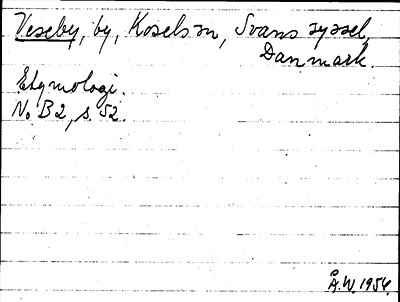 Veseby, by, Kosels sn, Svans syssel,
Danmark.
Etymologi.
No B2, s. 52.
Å.W. 1954.